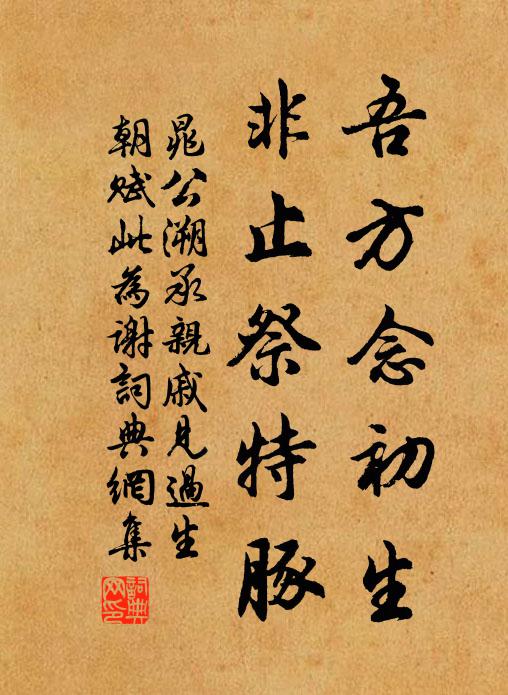 吾方念初生
非止祭特豚
晁公溯承親戚見過生
朝賦此為謝詞典網集
詞典網印